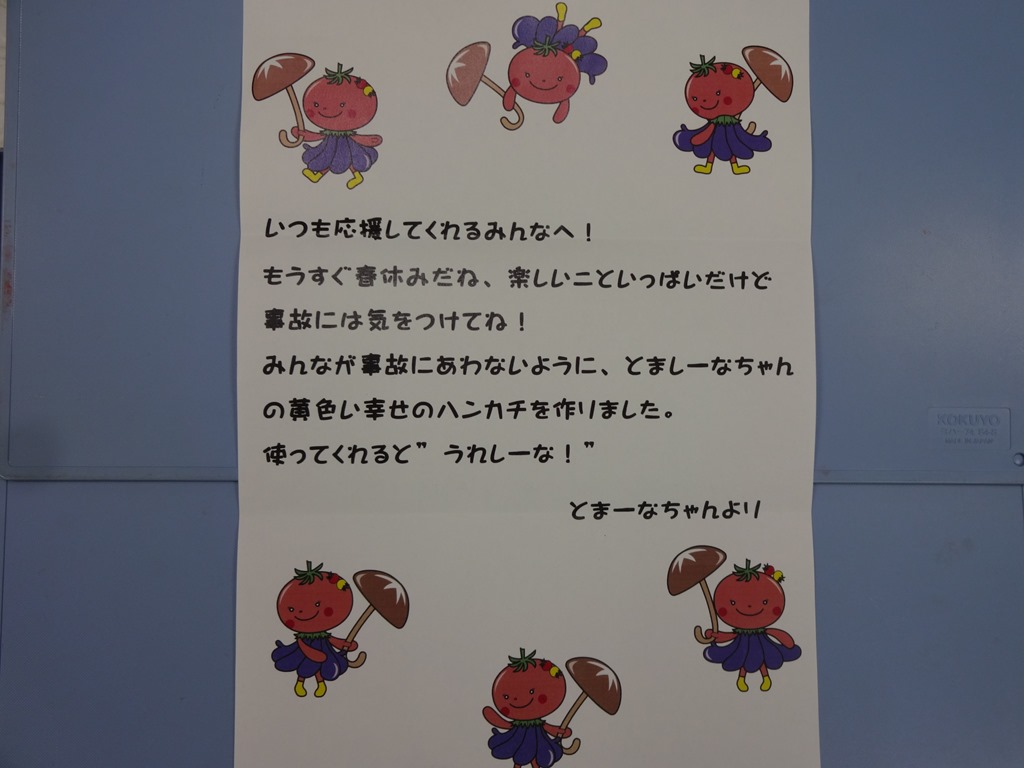 いつも応援してくれるみんなへ！
もうすぐ春休みだね、楽しいこといっぱいだけど
事故には気をつけてね！
みんなが事故にあわないように、とましーなちゃん
の黄色い幸せのハンカチを作りました。
使ってくれると”うれしーな！”
とまーなちゃんより
KOKUYO